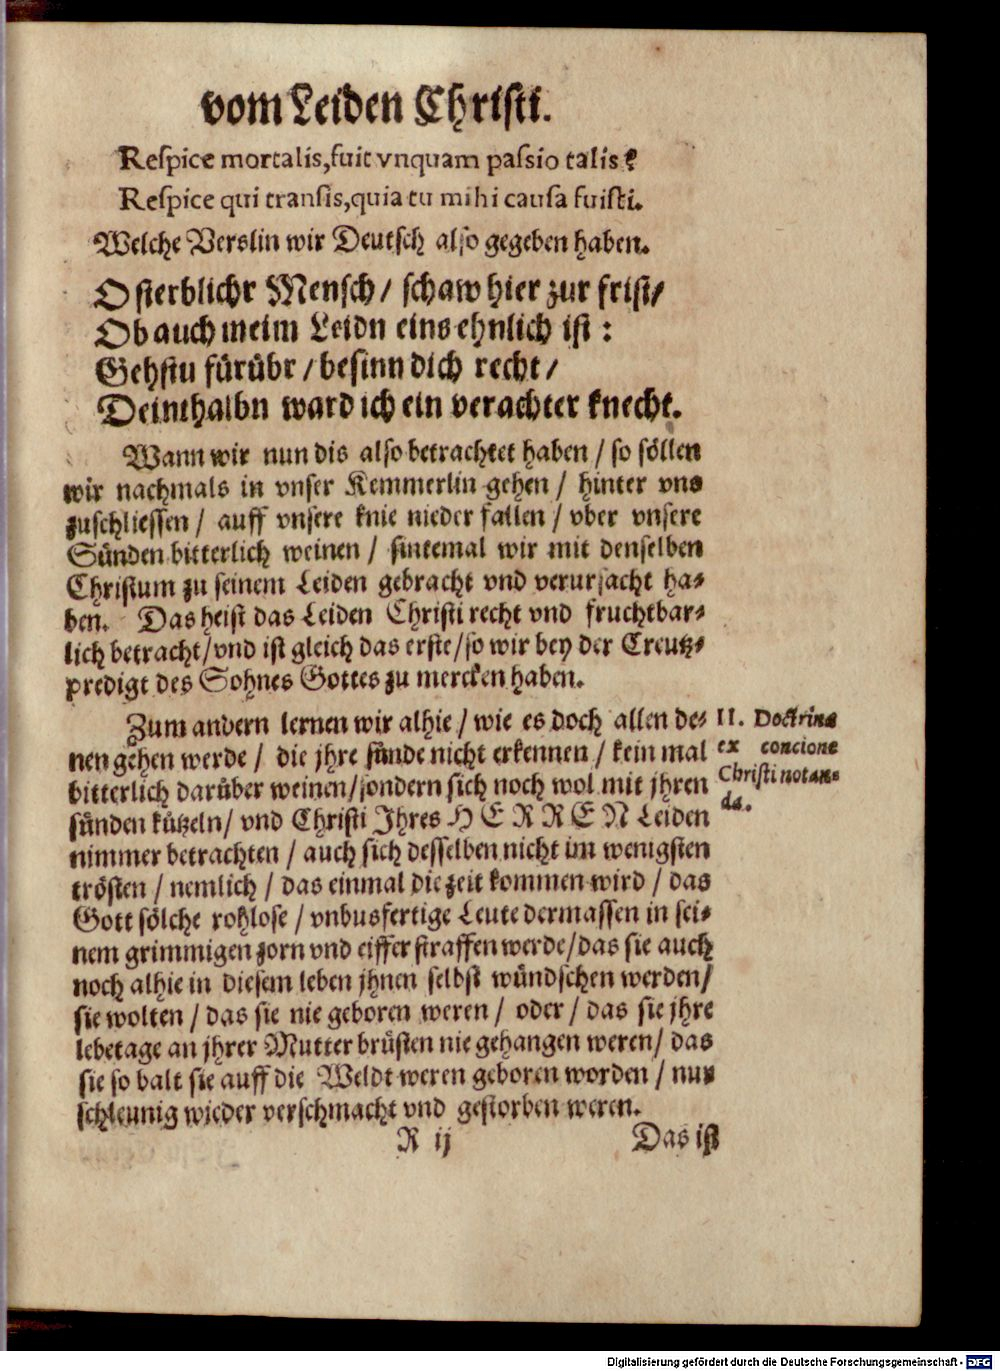 vom Leiden Christi.
Reſpice mortalis,fuit vnquam paſsio talis?
Reſpice qui tranſis,quia tu mihi cauſa fuiſti.
Welche Verslin wir Deutſch alſo gegeben haben.
O ſterblichr Menſch / ſchaw hier zur friſt/
Ob auch meim Leidn eins ehnlich iſt :
Gehſtu fürübr / beſinn dich recht /
Deinthalbn ward ich ein verachter knecht.
Wann wir nun dis alſo betrachtet haben / ſo ſöllen
wir nachmals in vnſer Kemmerlin gehen / hinter vns
zuſchlieſſen / auff vnſere knie nieder fallen / vber vnſere
Sünden bitterlich weinen / ſintemal wir mit denſelben
Chriſtum zu ſeinem Leiden gebracht vnd verurſacht ha⸗
ben. Das heiſt das Leiden Chriſti recht vnd fruchtbar⸗
lich betracht/vnd iſt gleich das erſte/ſo wir bey der Creutz⸗
predigt des Sohnes Gottes zu mercken haben.
Zum andern lernen wir alhie / wie es doch allen de⸗
nen gehen werde / die jhre ſünde nicht erkennen / kein mal
bitterlich darüber weinen/ſondern ſich noch wol mit jhren
ſünden kützeln/ vnd Chriſti Jhres HERREN Leiden
nimmer betrachten / auch ſich deſſelben nicht im wenigſten
tröſten / nemlich / das einmal die zeit kommen wird / das
Gott ſölche rohloſe / vnbusfertige Leute dermaſſen in ſei⸗
nem grimmigen zorn vnd eiffer ſtraffen werde/das ſie auch
noch alhie in dieſem leben jhnen ſelbſt wündſchen werden/
ſie wolten / das ſie nie geboren weren / oder / das ſie jhre
lebetage an jhrer Mutter brüſten nie gehangen weren/ das
ſie ſo balt ſie auff die Weldt weren geboren worden / nur
ſchleunig wieder verſchmacht vnd geſtorben weren.
II. Doctrina
ex concione
Chriſti notan⸗
da.
R ij
Das iſt
Digitalisierung gefördert durch die Deutsche Forschungsgemeinschaft - DFG